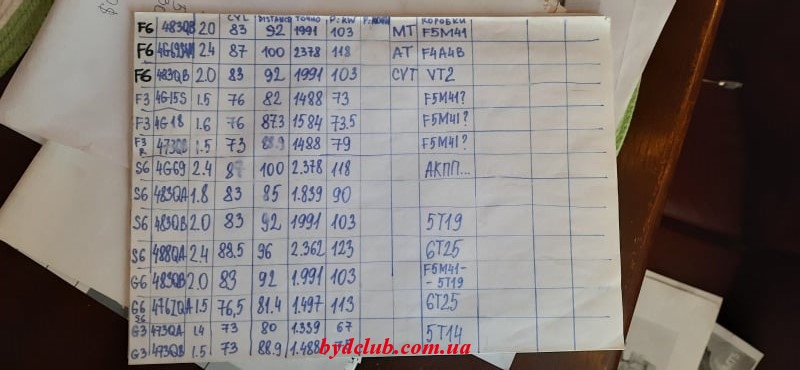 CYL DISTANCE ТОЧНО P:KW КОРОБКИ
F6 483QB 2.0 83 92 1991 103 MT F5M41
F6 2.4 87 100 2378 118 AT F4A4B
F6 483QB 2.0 83 92 1991 103 CVT VT2
F3 4G15S 1.5 76 82 1488 73 F5M41?
F3 4G18 1.6 76 873 1584 73.5 F5M41?
F3 R 473QB 1.5 73 88.9 1488 79 F5M41?
S6 4G69 2.4 87 100 2.378 118 АКПП...
S6 483QA 1.8 83 85 1.839 90
S6 483QB 2.0 83 92 1991 103 5T19
S6 488QA 2.4 88.5 96 2.362 123 6T25
G6 483QB 2.0 83 92 1.991 103 F5M41-
- 5T19
G6 476ZQA 1.5 76,5 81.4 1.497 113 6T25
S6
G3 473QA 1.4 73 80 1.339 67 5T14
G3 473QB 1.5 73 88.9 1.488
bydclub.com.ua